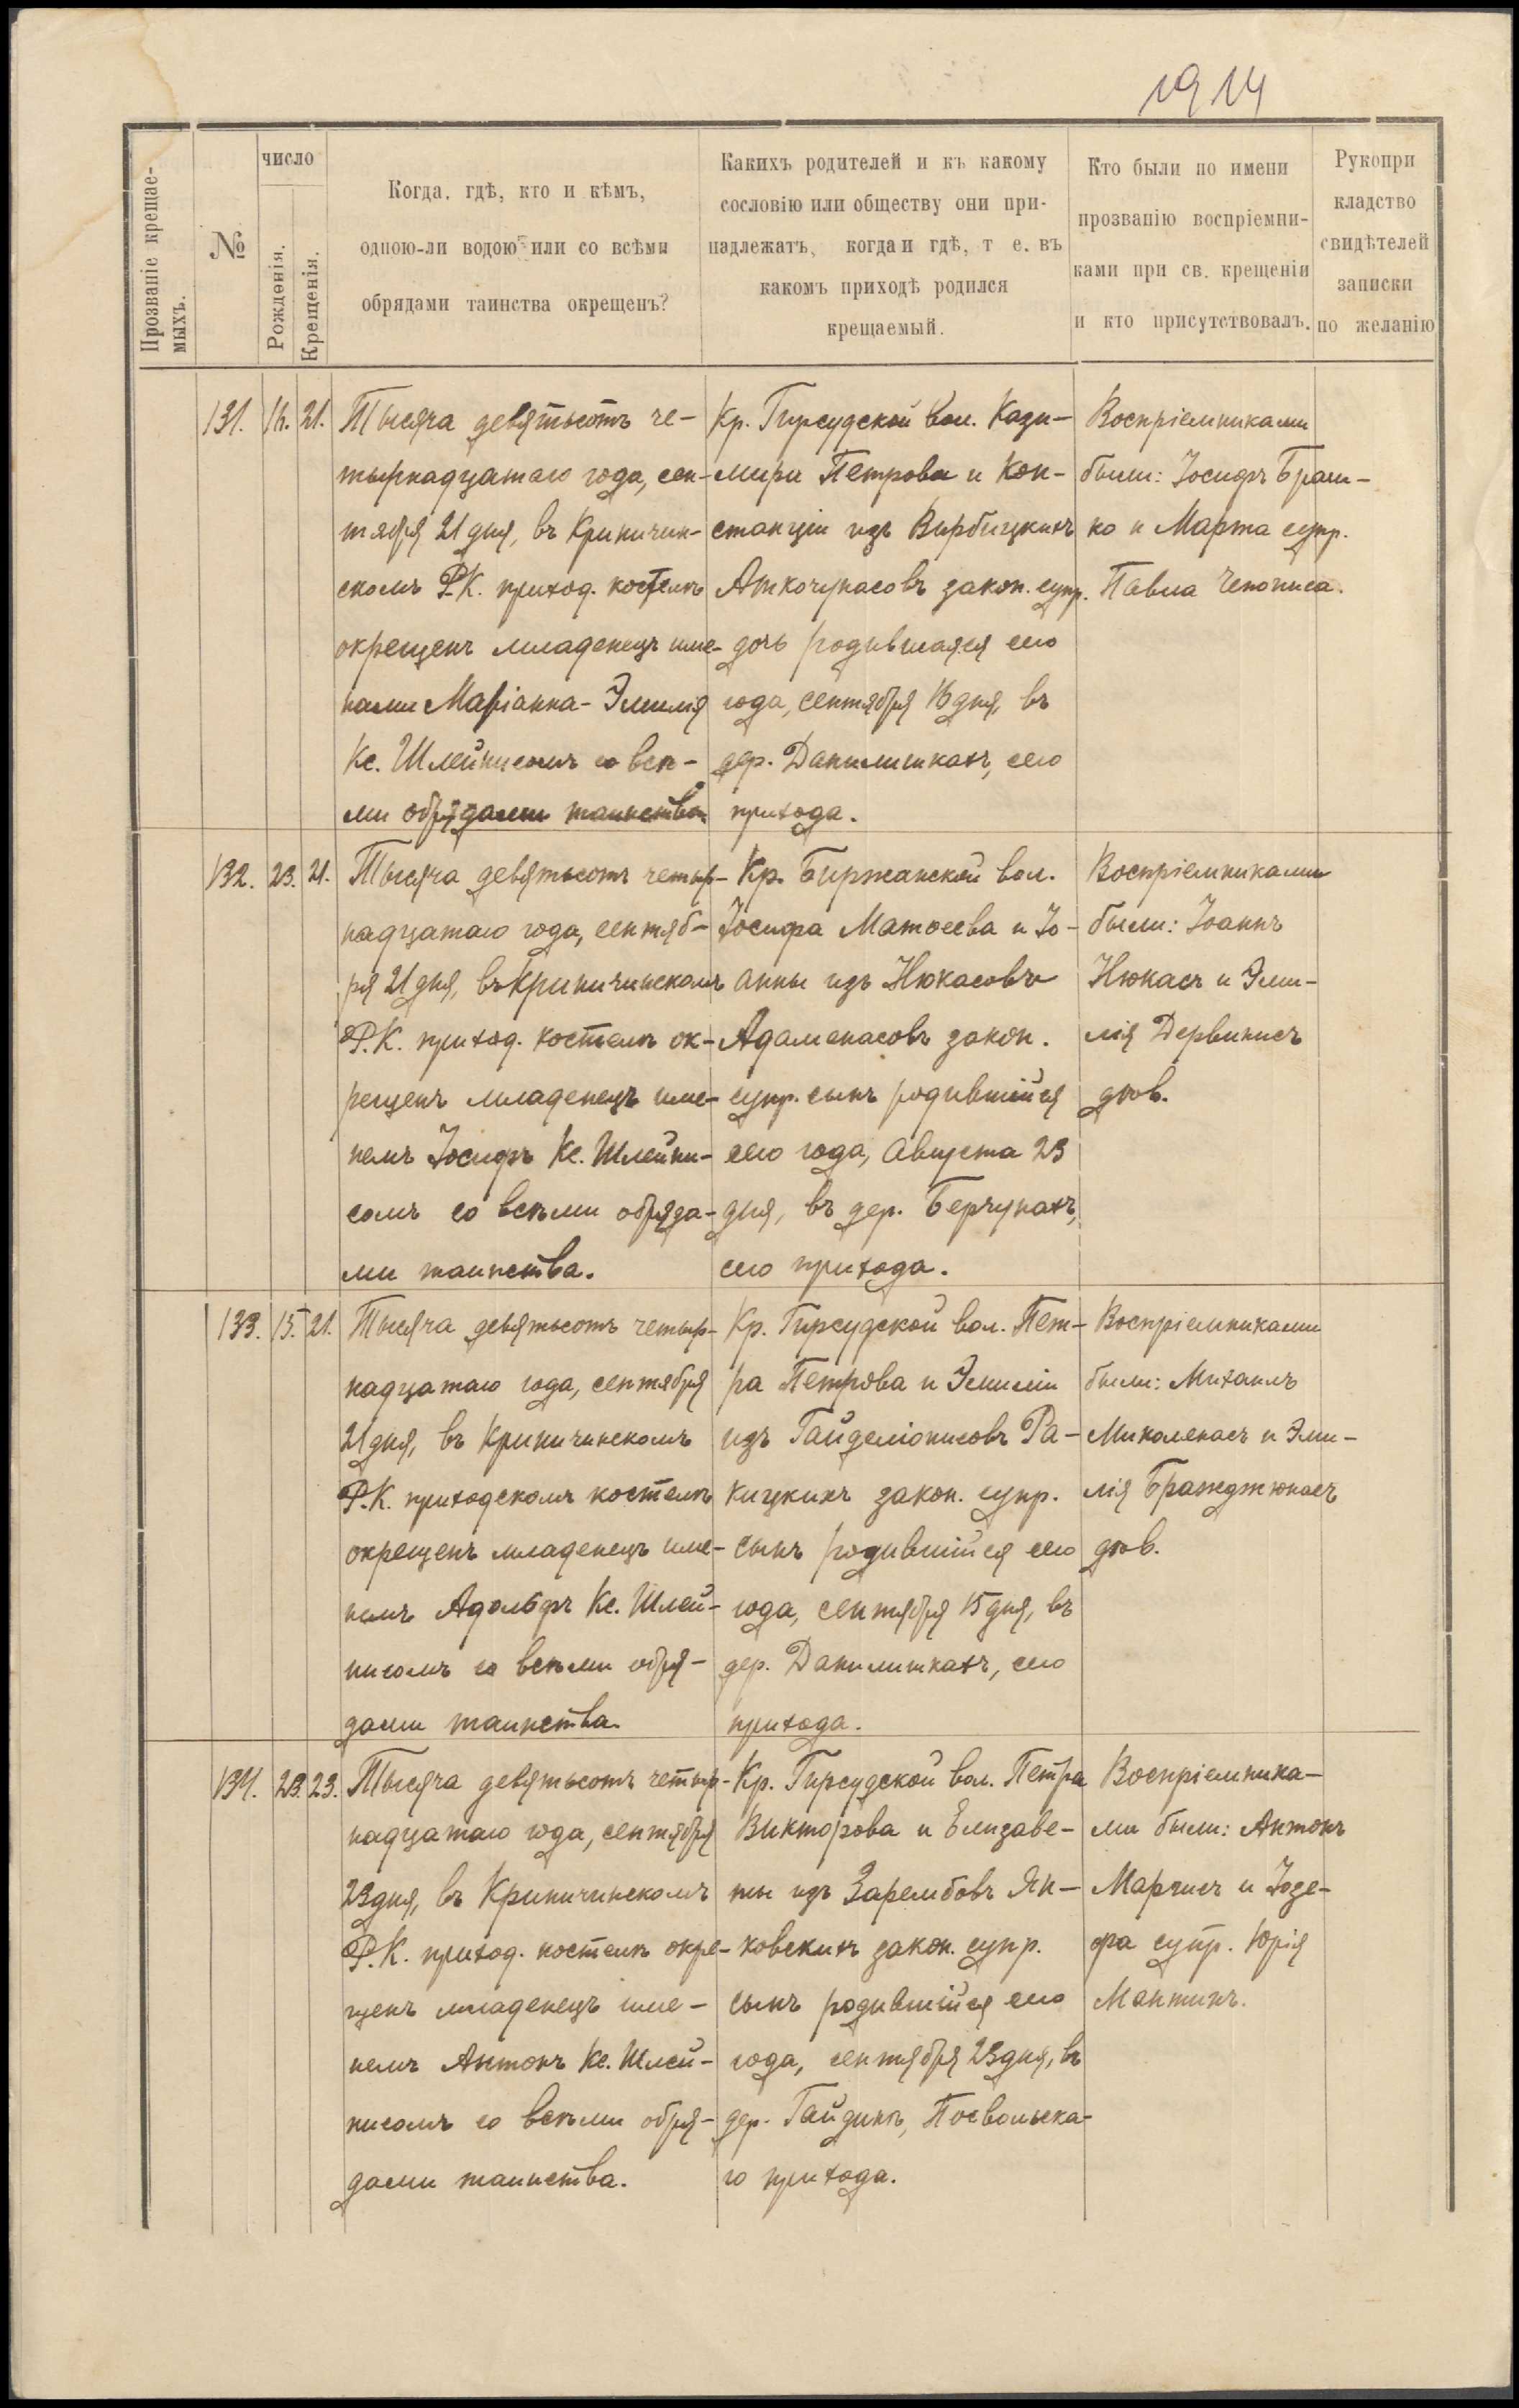 1914
Прозваніе крещае-
мыхъ.
№
число
Рожденія.
Крещенія.
Когда, гдѣ, кто и кѣмъ,
одною-ли водою или со всѣми
обрядами таинства окрещенъ?
Какихъ родителей и къ какому
сословію или обществу они при-
надлежатъ, когда и гдѣ, т е. въ
какомъ приходѣ родился
крещаемый.
Кто были по имени
прозванію воспріемни-
ками при св. крещеніи
и кто присутствовалъ.
Рукопри
кладство
свидѣтелей
записки
по желанію
131. 16. 21.
Тысяча девятьсотъ че-
тырнадцатаго года, сен-
тября 21 дня, въ Криничин-
скомъ Р.К. приход. костелѣ
окрещенъ младенецъ име-
нами Маріанна-Эмилія
Кс. Шлейнисомъ со всѣ-
ми обрядами таинства.
Кр. Гирсудской вол. Кази-
мира Петрова и Кон-
станціи изъ Вирбицкихъ
Аткочунасовъ закон. супр.
дочь родившаяся сего
года, сентября 16 дня, въ
дер. Данилишкахъ, сего
прихода.
Воспріемниками
были: Іосифъ Браш-
ко и Марта супр.
Павла Чепониса.
132. 23. 21.
Тысяча девятьсотъ четыр-
надцатаго года, сентяб-
ря 21 дня, въ Криничинскомъ
Р.К. приход. костелѣ ок-
рещенъ младенецъ име-
немъ Іосифъ Кс. Шлейни-
сомъ со всѣми обряда-
ми таинства.
Кр. Биржанской вол.
Іосифа Матѳеева и Іо-
анны изъ Нюкасовъ
Адаменасовъ закон.
супр. сынъ родившійся
сего года, Августа 23
дня, въ дер. Берчунахъ,
сего прихода.
Воспріемниками
были: Іоаннъ
Нюкасъ и Эми-
лія Дервинисъ
дѣв.
133. 15. 21.
Тысяча девятьсотъ четыр-
надцатаго года, сентября
21 дня, въ Криничинскомъ
Р.К. приходскомъ костелѣ
окрещенъ младенецъ име-
немъ Адольфъ Кс. Шлей-
нисомъ со всѣми обря-
дами таинства.
Кр. Гирсудской вол. Пет-
ра Петрова и Эмиліи
изъ Гайделіонисовъ Ра-
кицкихъ закон. супр.
сынъ родившійся сего
года, сентября 15 дня, въ
дер. Данилишкахъ, сего
прихода.
Воспріемниками
были: Михаилъ
Миколенасъ и Эми-
лія Бражджюнасъ
дѣв.
134. 23. 23.
Тысяча девятьсотъ четыр-
надцатаго года, сентября
23 дня, въ Криничинскомъ
Р.К. приход. костелѣ окре-
щенъ младенецъ име-
немъ Антонъ Кс. Шлей-
нисомъ со всѣми обря-
дами таинства.
Кр. Гирсудской вол. Петра
Викторова и Елизаве-
ты изъ Зарембовъ Ян-
ковскихъ закон. супр.
сынъ родившійся сего
года, сентября 23 дня, въ
дер. Гайдинѣ, Посвольска-
го прихода.
Воспріемника-
ми были: Антонъ
Марчисъ и Іозе-
фа супр. Юрія
Мантинъ.